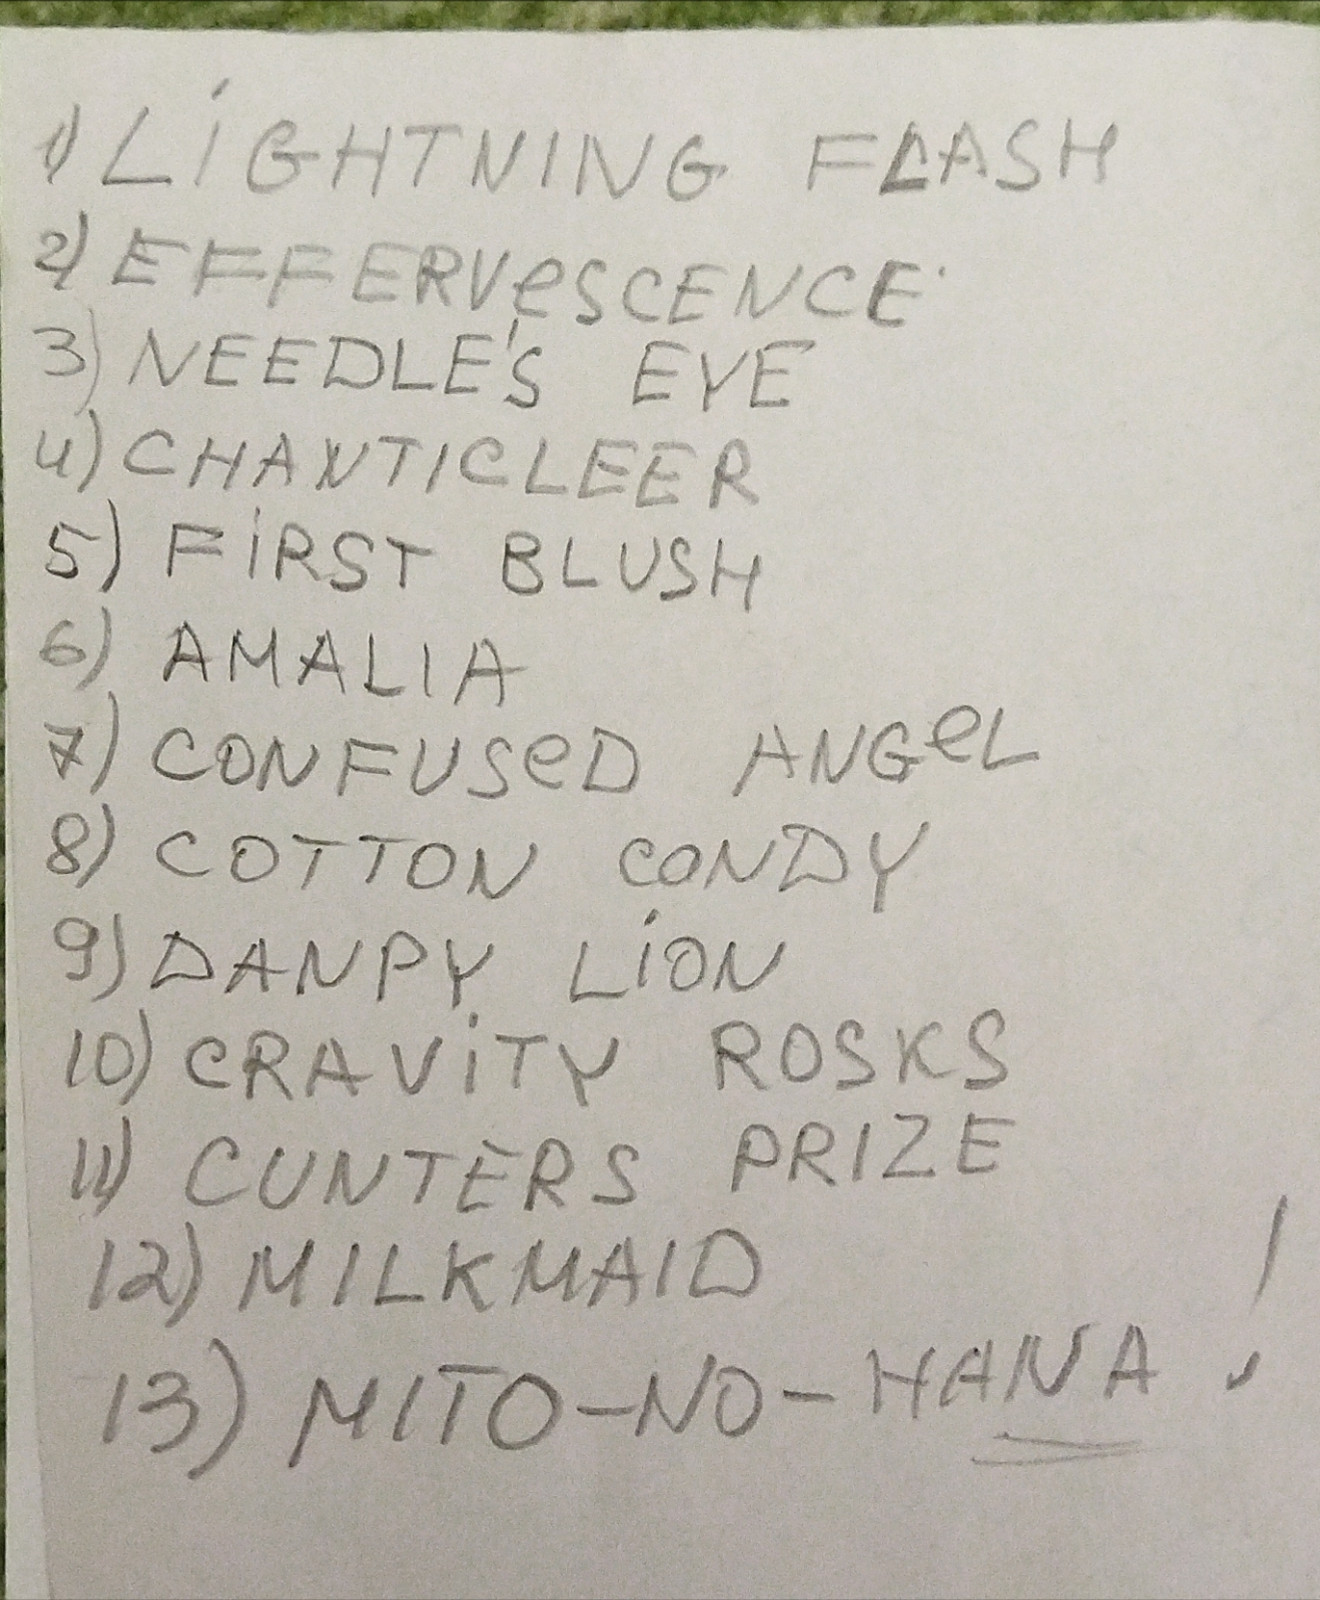 1) LiGHTNING FLASH
2) EFFERVeSCENCE
3) NEEDLE'S EYE
4) CHANTICLEER
5) FiRST BLUSH
6) AMALIA
7) CONFUSeD ANGeL
8) COTTON CONDY
9) DANPY LiON
10) CRAViTY ROSKS
11) CUNTERS PRIZE
12) MILKMAID
13) MITO-NO-HANA!